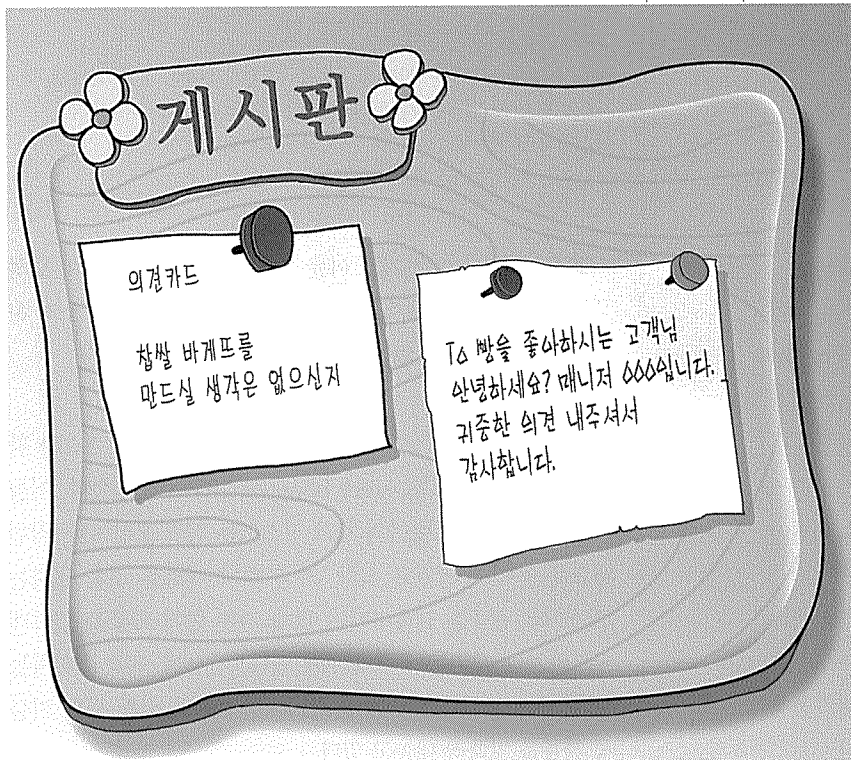 게시판
의견카드
찹쌀 바게뜨를
만드실 생각은 없으신지
To 빵을 좋아하시는 고객님
안녕하세요? 매니저 OOO입니다.
귀중한 의견 내주셔서
감사합니다.